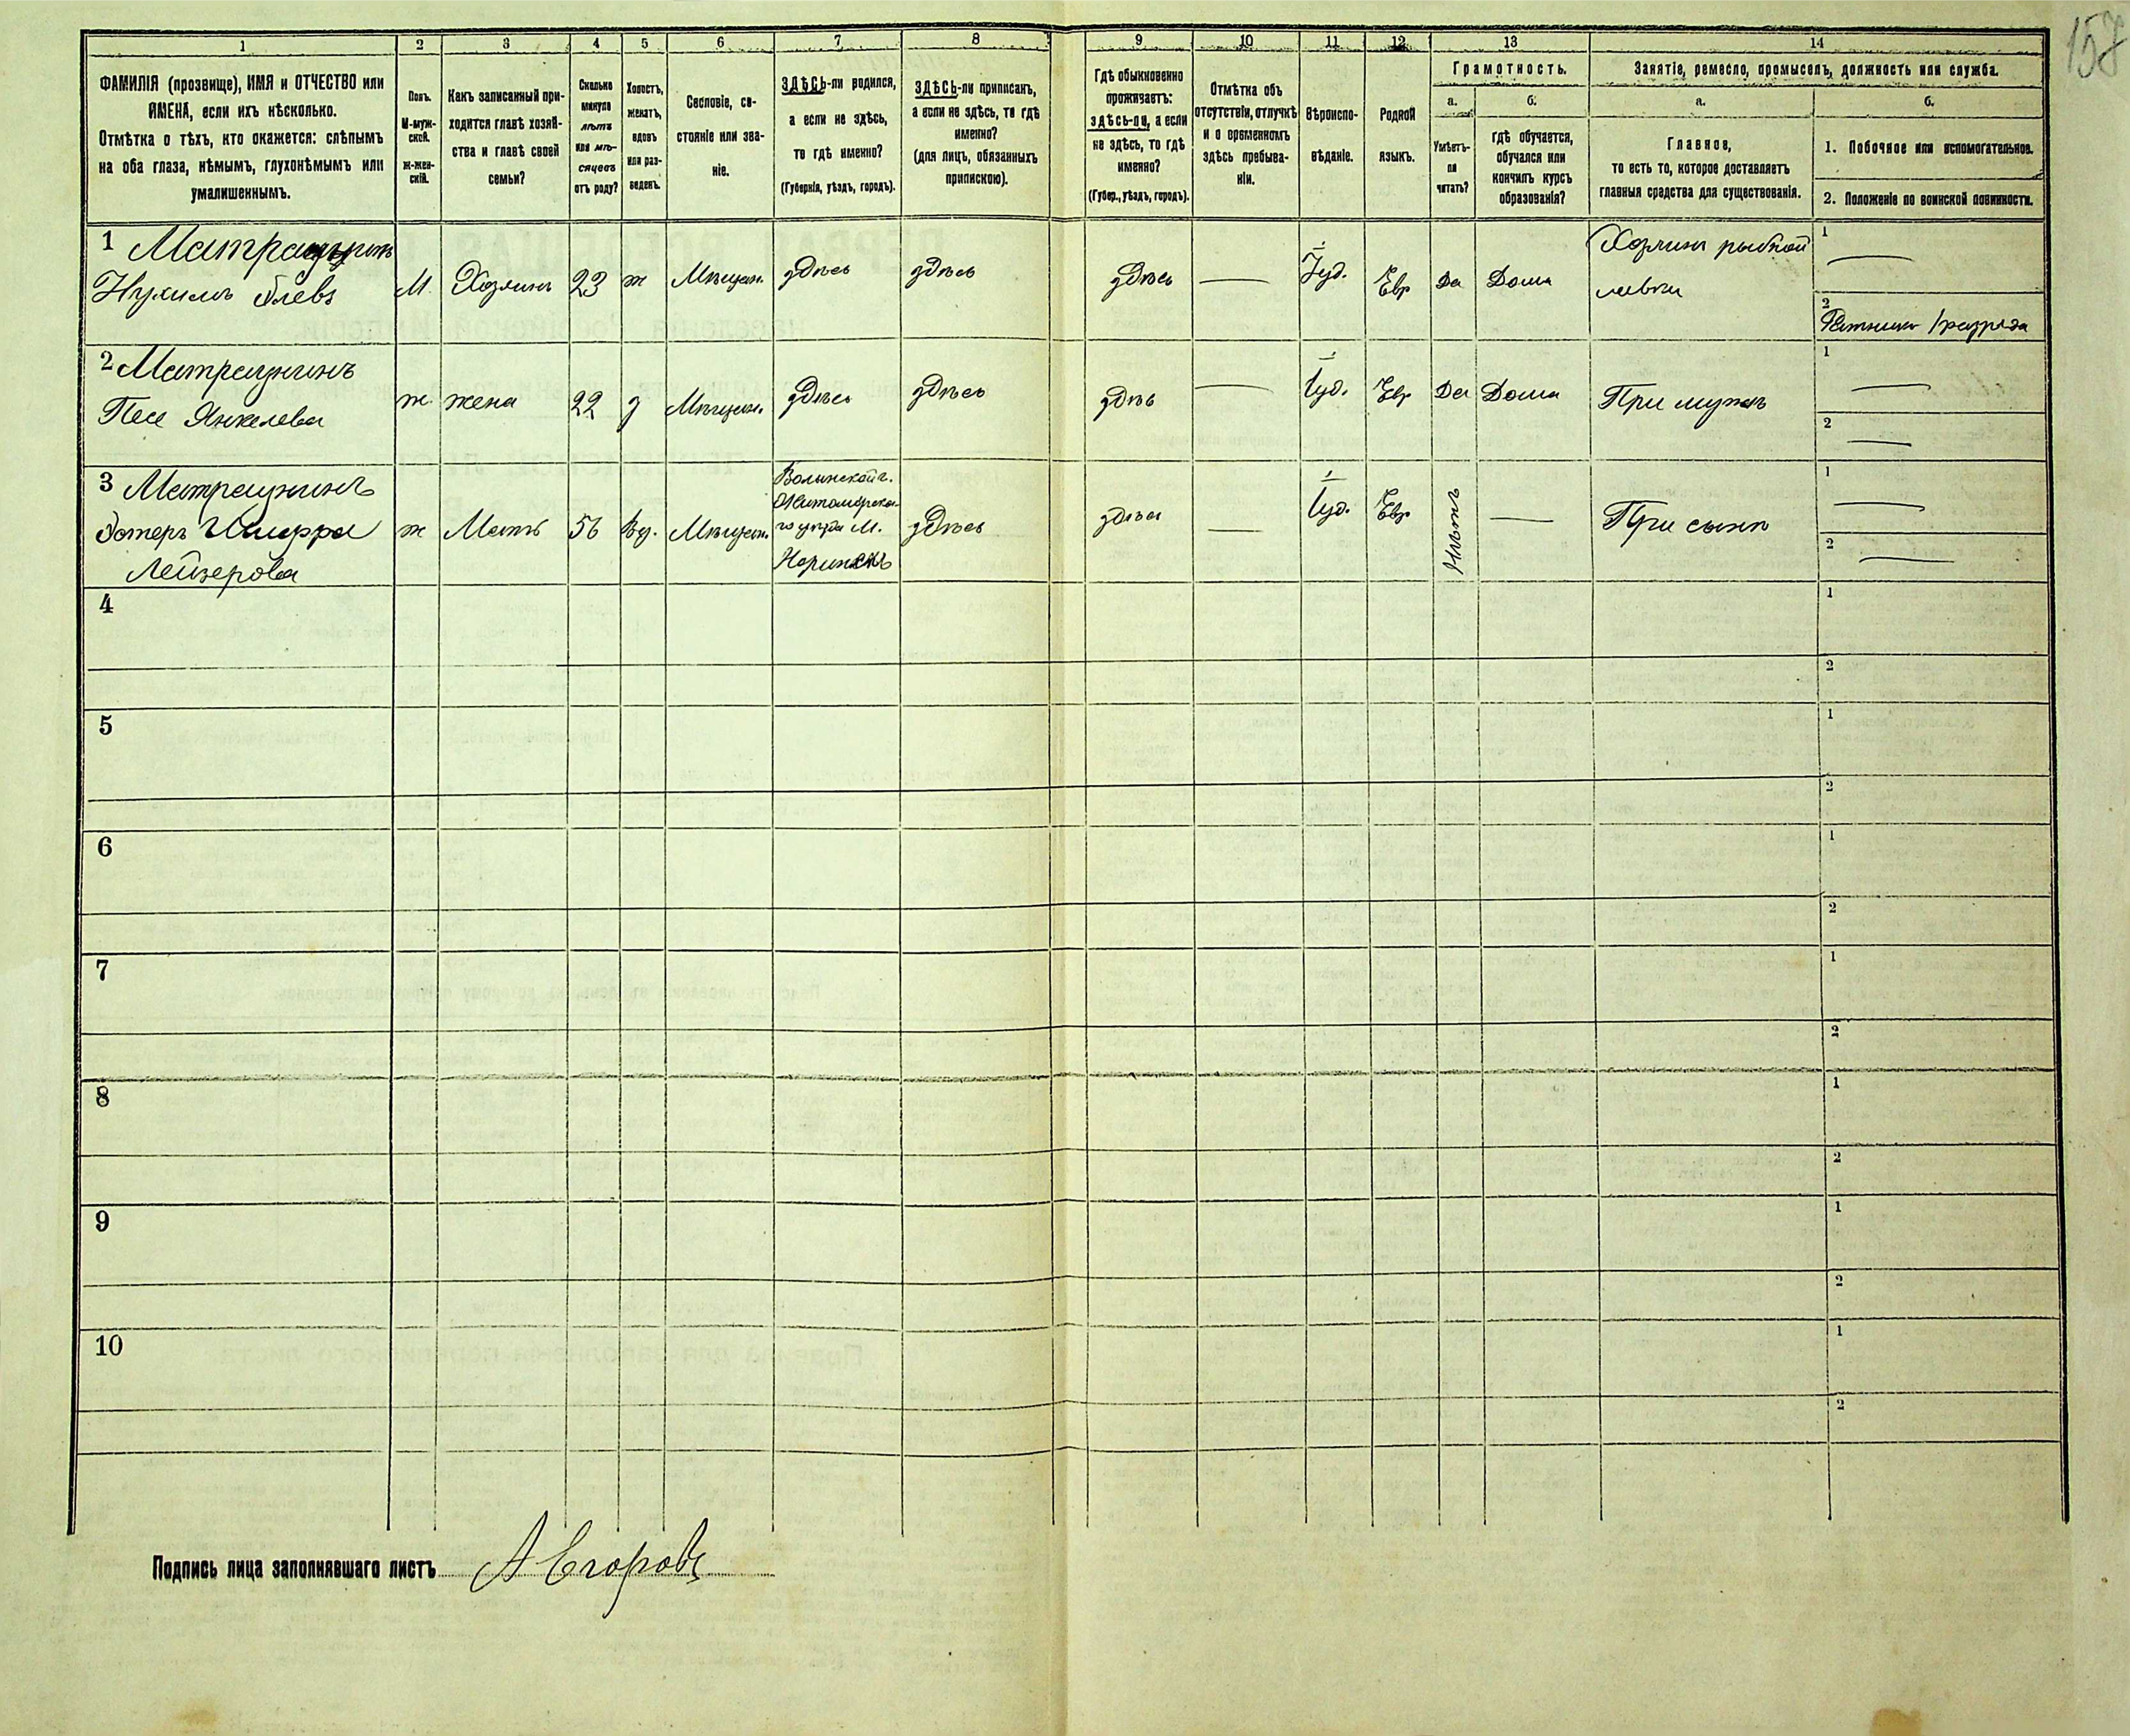 157
1 2 3 4 5 6 7 8 9 10 11 12 13 14
ФАМИЛІЯ (прозвище), ИМЯ и ОТЧЕСТВО или
ИМЕНА, если ихъ нѣсколько.
Отмѣтка о тѣхъ, кто окажется: слѣпымъ
на оба глаза, нѣмымъ, глухонѣмымъ или
умалишеннымъ.
Полъ.
М-муж-
ской.
Ж-жен-
скій.
Какъ записанный при-
ходится главѣ хозяй-
ства и главѣ своей
семьи?
Сколько
минуло
лѣтъ
или мѣ-
сяцевъ
отъ роду?
Холостъ,
женатъ,
вдовъ
или раз-
веденъ.
Сословіе, со-
стояніе или зва-
ніе.
ЗДѢСЬ-ли родился,
а если не здѣсь,
то гдѣ именно?
(Губернія, уѣздъ, городъ).
ЗДѢСЬ-ли приписанъ,
а если не здѣсь, то гдѣ
именно?
(для лицъ, обязанныхъ
припискою).
Гдѣ обыкновенно
проживаетъ:
здѣсь-ли, а если
не здѣсь, то гдѣ
именно?
(Губер., уѣздъ, городъ).
Отмѣтка объ
отсутствіи, отлучкѣ
и о временномъ
здѣсь пребыва-
ніи.
Вѣроиспо-
вѣданіе.
Родной
языкъ.
Грамотность.
а.
Умѣетъ-
ли
читать?
б.
гдѣ обучается,
обучался или
кончилъ курсъ
образованія?
Занятіе, ремесло, промыселъ, должность или служба.
а.
Главное,
то есть то, которое доставляетъ
главныя средства для существованія.
б.
1. Побочное или вспомогательное.
2. Положеніе по воинской повинности.
1
Нухимъ М. Хозяинъ 23 ж Мѣщан. здѣсь здѣсь здѣсь — Іуд. Евр Да Дома Хозяинъ рыбной
лавки
1 —
2 Ратникъ 1 разряда
2 Матрацникъ
Песе Янкелева ж. жена 22 з Мѣщан. здѣсь здѣсь здѣсь — Іуд. Евр Да Дома При мужѣ
1 —
2 —
3 Матрацникъ
Эстеръ Шифра
Лейзерова ж Мать 56 Вд. Мѣщан.
Волынской г.
Житомірска-
го уѣзда М.
Норинскъ
здѣсь здѣсь — Іуд. Евр Нѣтъ — При сынѣ
1 —
2 —
4 1
2
5 1
2
6 1
2
7 1
2
8 1
2
9 1
2
10 1
2
Подпись лица заполнявшаго листъ А Егоровъ